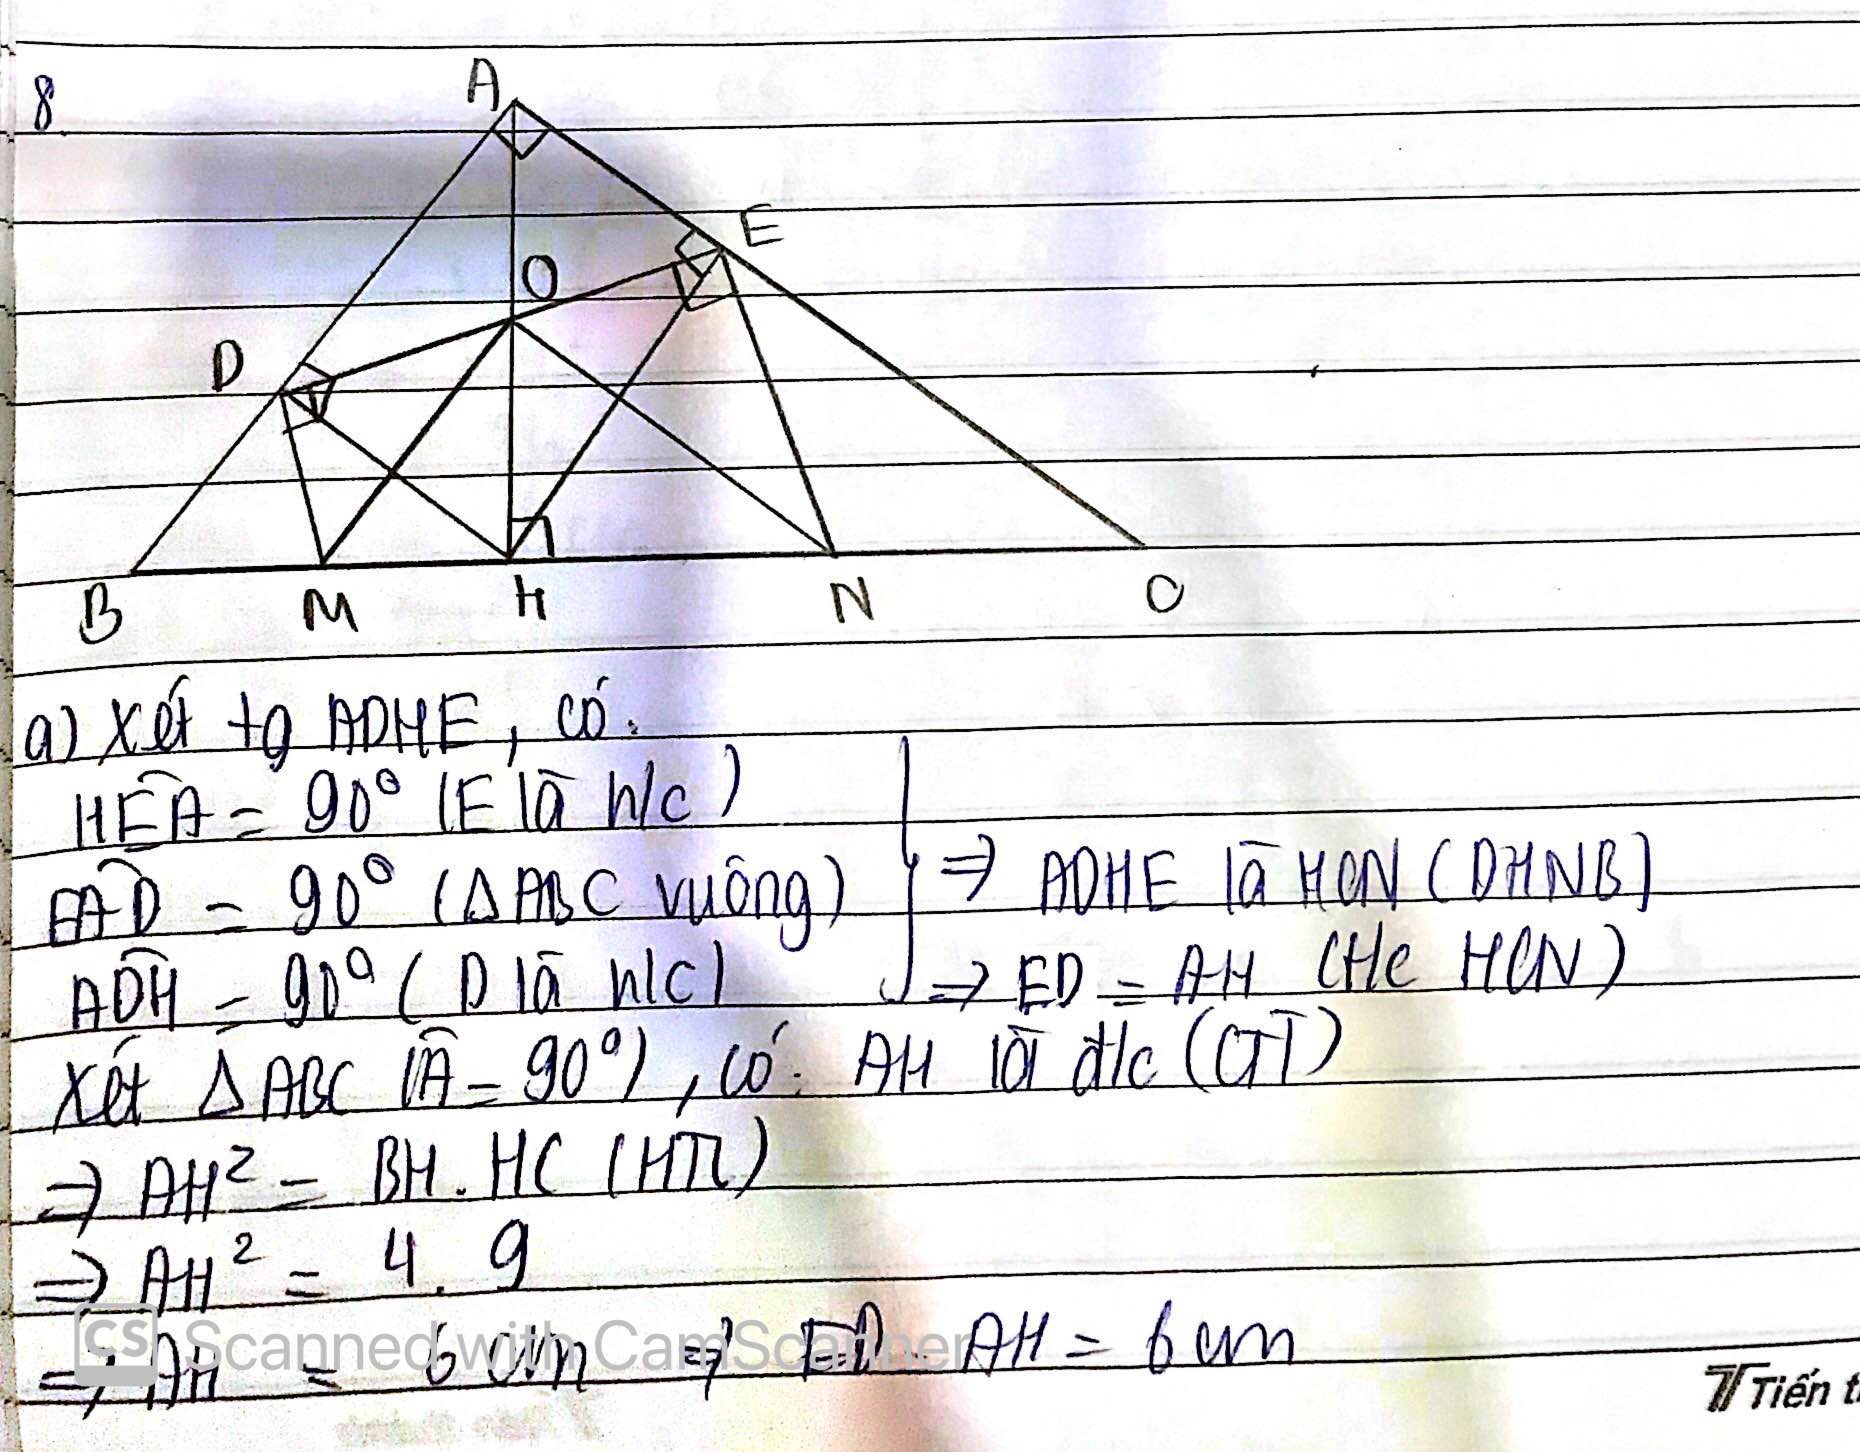 8.
A
E
O
D
B M H N C
a) Xét tg ADHE, có:
HÊA = 90° (E là h/c)
EÂD = 90° (Δ ABC vuông) ⇒ ADHE là HCN (DHNB)
ADH = 90° (D là h/c) ⇒ ED = AH (t/c HCN)
Xét Δ ABC (Â = 90°), có: AH là đ/c (GT)
⇒ AH² = BH . HC (HTL)
⇒ AH² = 4 . 9
⇒ AH = 6 cm ⇒ ED = AH = 6 cm
CS Scanned with CamScanner
Tiến t